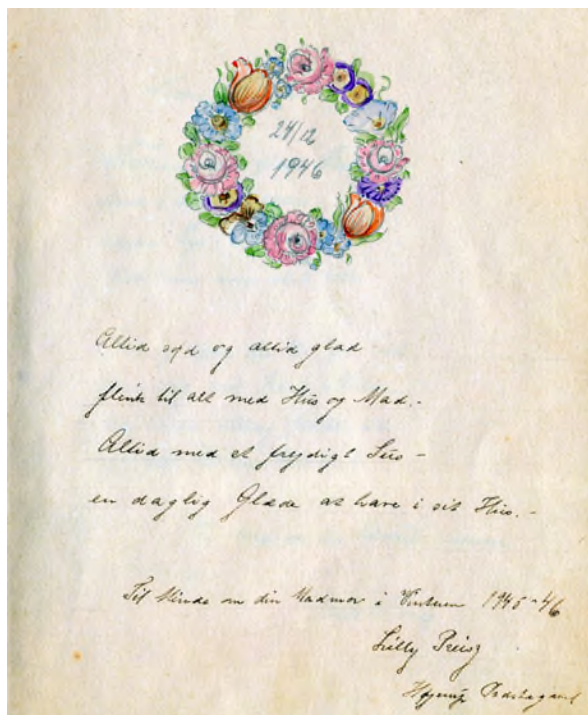 24/12
1946
Altid sød og altid glad
flink til alt med Hus og Mad.-
Altid med et frejdigt Sus -
en daglig Glæde at have i sit Hus.-
Til Minde om din Madmor i Vinteren 1945-46
Lilly Preisz